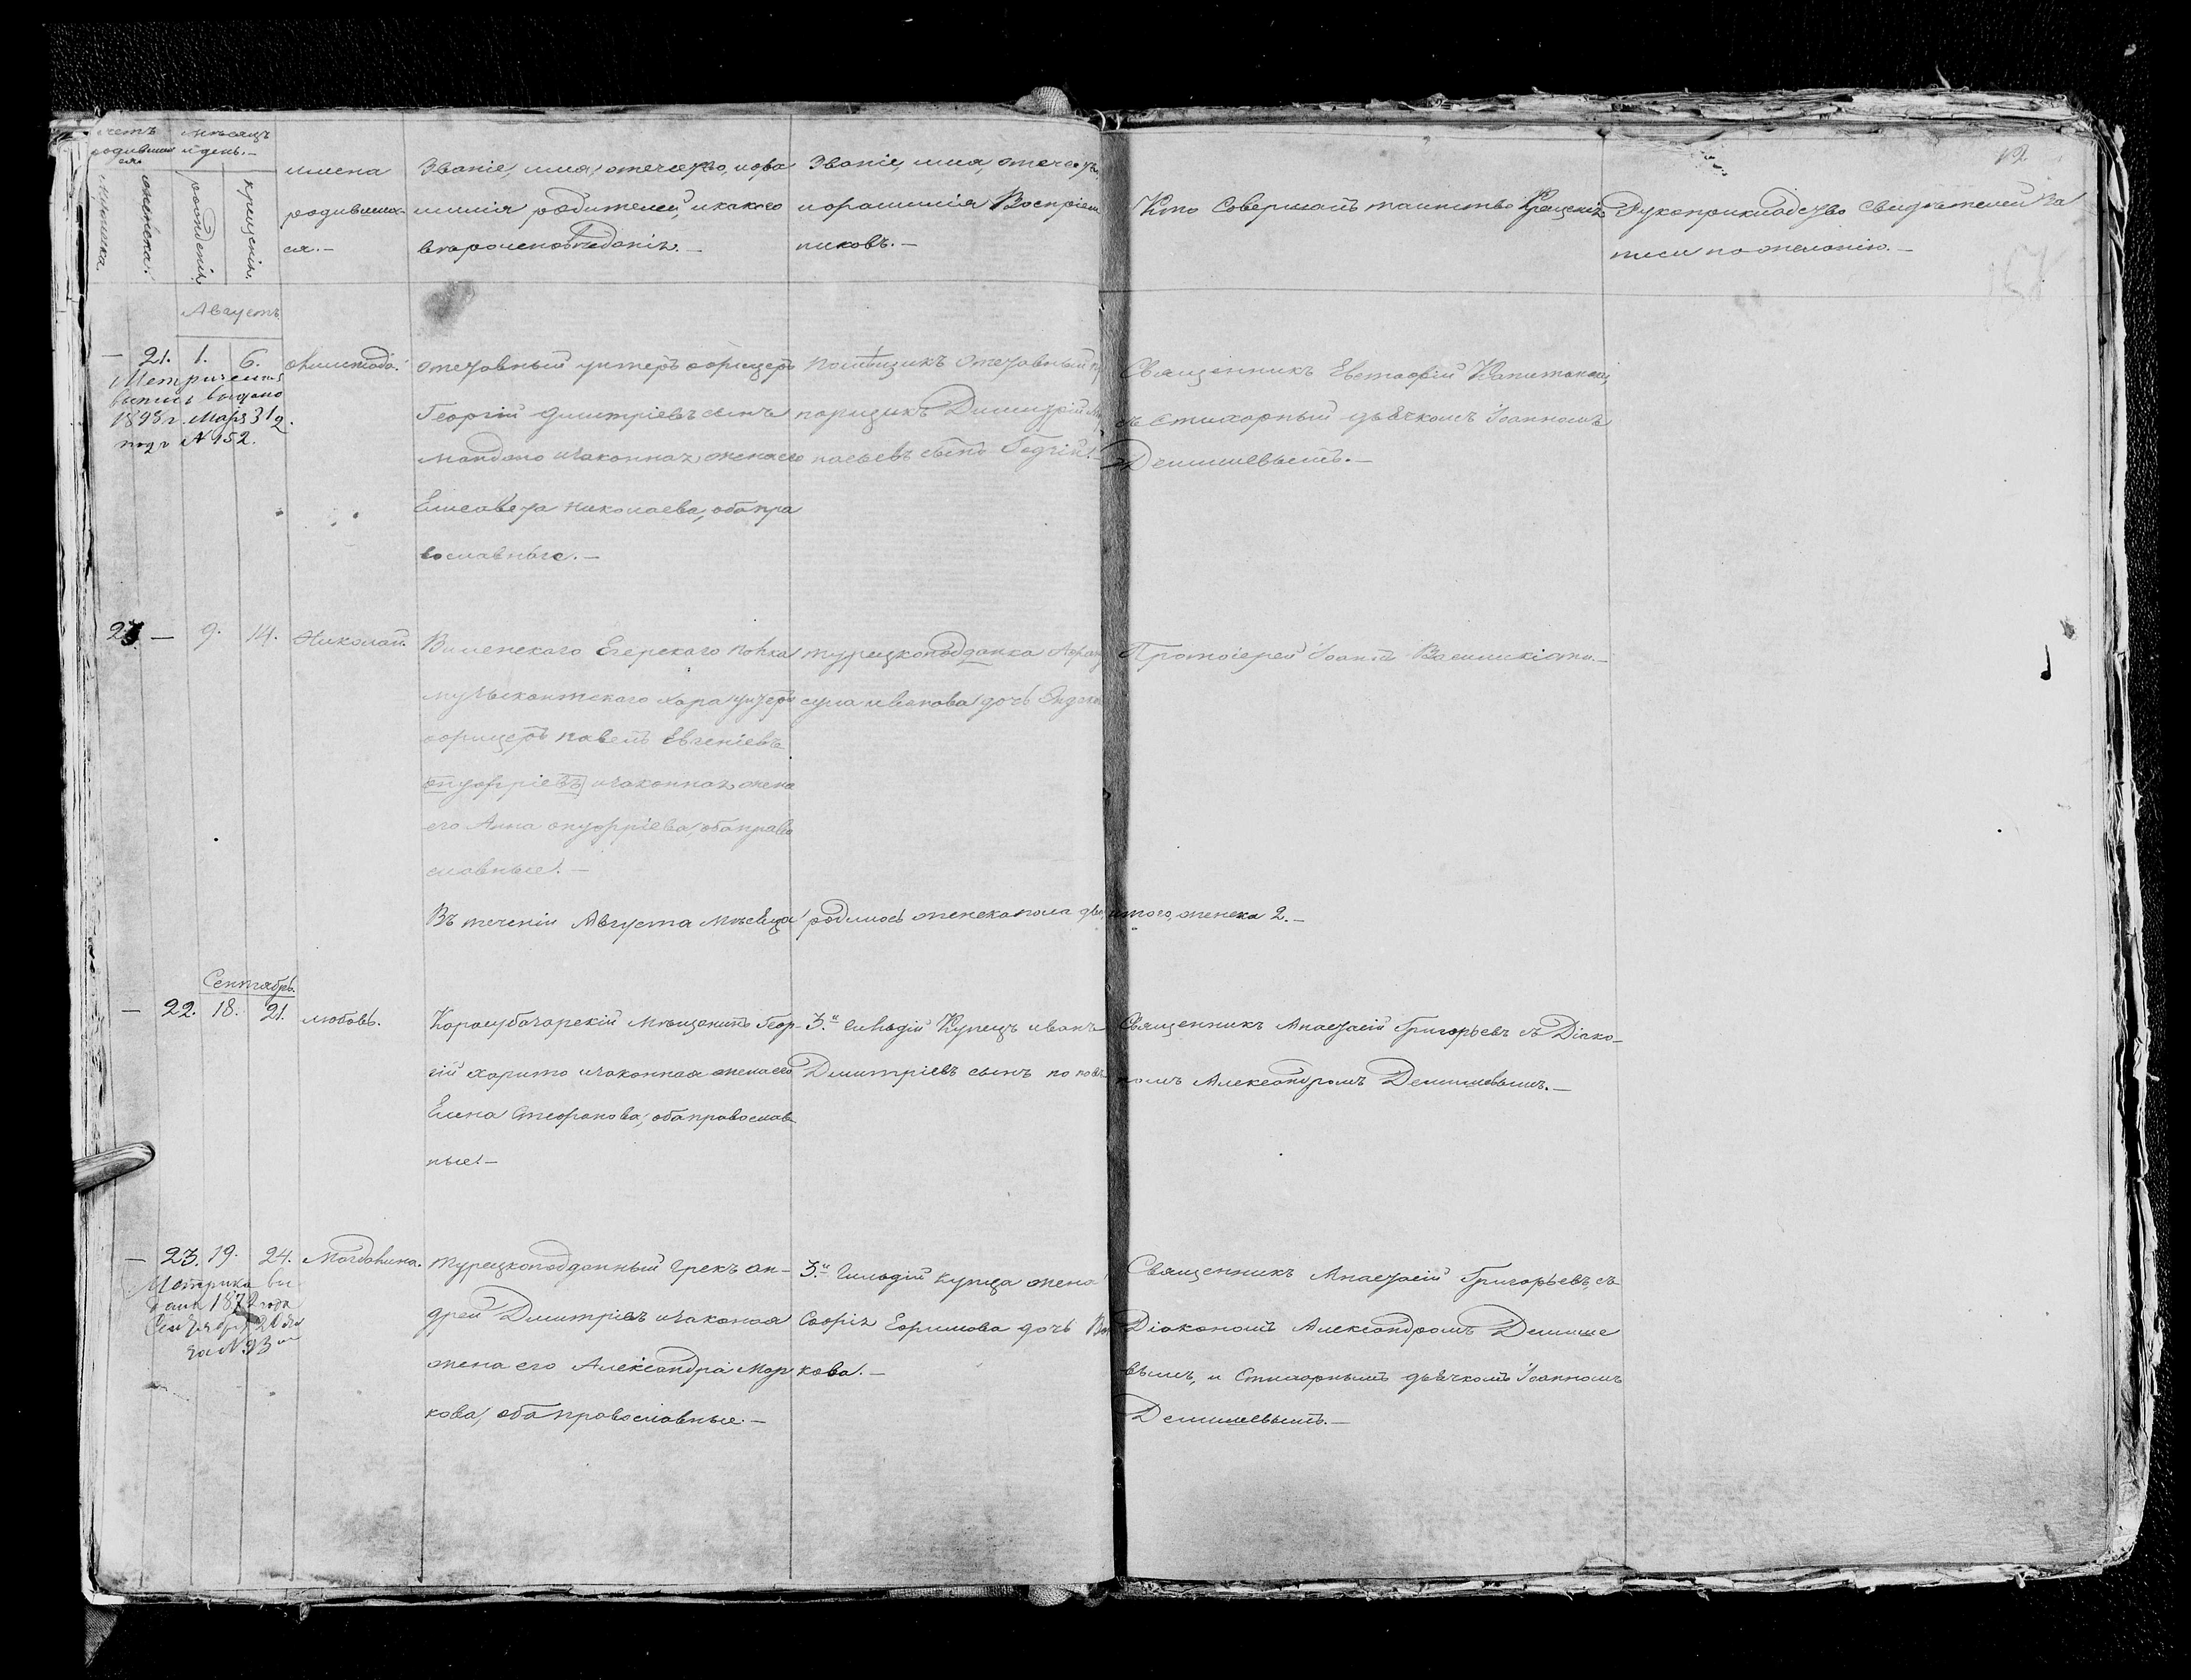 12
Счетъ родившихся
Мѣсяцъ и день.—
Мужеска.
женска.
рожденія.
крещенія.
имена
родивших-
ся.—
Званіе, имя, отечество, и фа
милія родителей, и какого
вѣроисповѣданія.—
Званіе, имя, отечеств
и фамилія Воспріем
никовъ.—
Кто Совершалъ таинство Крещенія
Рукоприкладство свидѣтелей за
писи по желанію.—
Августъ
— 21. 1. 6.
Метрическая
выпись выдана
1898 г. Мар. 31 д.
подъ № 152.
отставный унтеръ офицеръ
Георгій Димитріевъ сынъ
Мандато и законная жена его
Елисавета Николаева, оба пра
вославные.—
помѣщикъ Отставный
поручикъ Димитрій
сынъ
Священникъ Евстафій
съ Стихарный дьячкомъ Іоанномъ
Демишевымъ.—
23 — 9. 14. Николай.
Виленскаго Егерскаго полка
музыкантскаго хора унтеръ
офицеръ Павелъ Евгеніевъ
онуфріевъ и законная жена
его Анна онуфріева, оба право
славные.—
турецкоподданка
иванова дочь
Протоіерей Іоаннъ
Въ теченіи Августа мѣсяца родилось женска пола два, итого, женска 2.—
Сентябрь.
— 22. 18. 21. Любовь.
Карасубазарскій мѣщанинъ Геор-
гій харито и законная жена его
Елена Стефанова, оба православ
ные.—
3.й гильдіи Купецъ иванъ
Димитріевъ сынъ попов
Священникъ Анастасій Григорьевъ съ Діяко-
номъ Александромъ Демишевымъ.—
— 23. 19. 24. Магдалина.
Метрика вы
дана 1872 года
Сентября 20 дня
за № 93
Турецкоподданный Грекъ Ан-
дрей Димитріевъ и законая
жена его Александра Мар
кова, оба православные.—
3.й Гильдіи купца жена
Софія Ефимова дочь
кова.—
Священникъ Анастасій Григорьевъ, съ
Діакономъ Александромъ Демише
вымъ, и Стихарнымъ дьячкомъ Іоанномъ
Демишевымъ.—